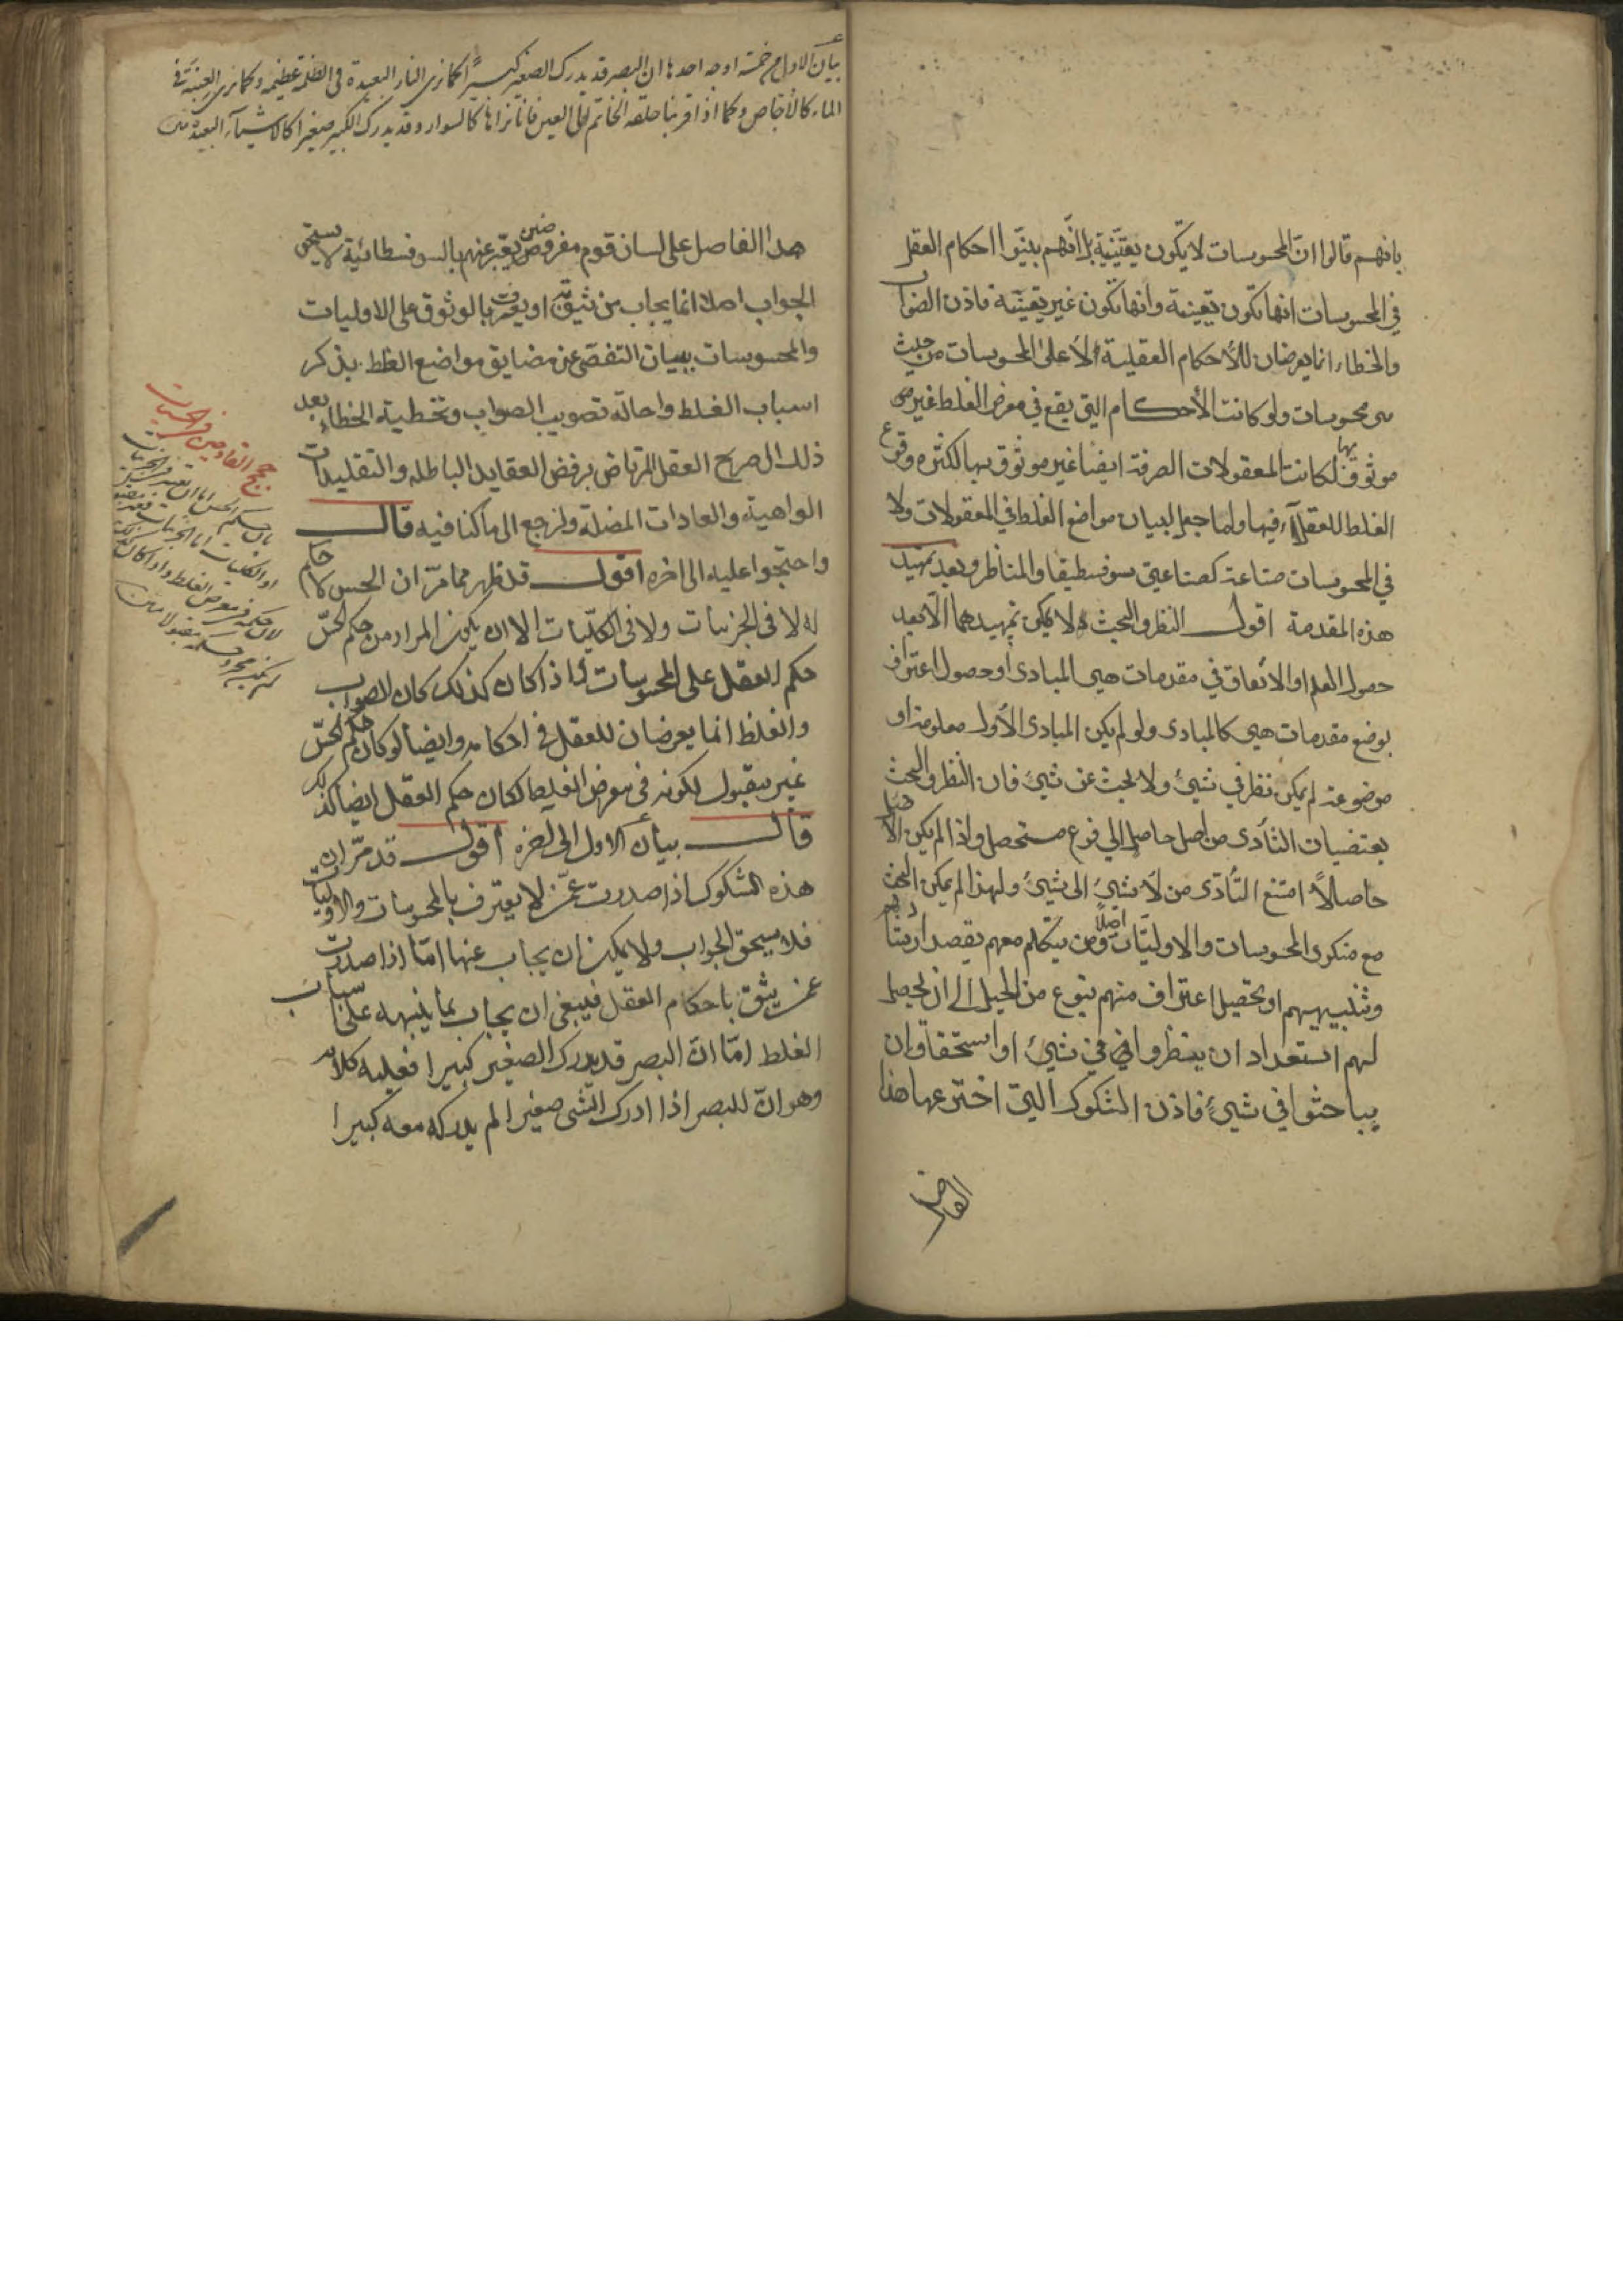 بانهم قالوا انّ المحسوسات لا يكون يقينية بل انّهم بينوا احكام العقل
في المحسوسات انها تكون يقينية وانها تكون غير يقينية فاذن الصواب
والخطاء انما يعرضان للأحكام العقلية لا على المحسوسات من حيث
هى محسوسات ولو كانت الأحكام التي يقع في معرض الغلط غير
موثوق بها لكانت المعقولات الصرفة ايضا غير موثوق بها لكثره وقوع
الغلط للعقلآء فيها ولما جعل لبيان مواضع الغلط في المعقولات ولا
في المحسوسات صناعة كصناعتي سوفسطيقا والمناظر وبعد تمهيد
هذه المقدمة اقول النظر والبحث لا يمكن تمهيدهما الّا بعد
حصول العلم او الاتفاق في مقدمات هي المبادى او حصول اعتراف
بوضع مقدمات هي كالمبادى ولو لم يكن المبادى الأول معلومة او
موضوعة لم يمكن نظر في شيئ ولا بحث عن شيئ فان النظر والبحث
يقتضيان التأدى من اصل حاصل الي فرع مستحصل واذا لم يكن الاصل
حاصلاً امتنع التأدّى من لا شيئ الى شيئ ولهذا لم يمكن البحث
مع منكرى المحسوسات والاوليّات اصلاً ومن يتكلم معهم يقصد ارشادهم
وتنبيههم او تحصيل اعتراف منهم بنوع من الحيل الي ان يحصل
لهم استعداد ان ينظروا في شيئ او استحقاق ان
يباحثوا في شيئ فاذن الشكوك التي اخترعها هذا
الفاضل
بيان الاول من خمسة اوجه احدها ان البصر قد يدرك الصغير كبيراً كما نرى النار البعيدة في الظلمة عظيمة وكما نرى العنبة في
الماء كالأجاص وكما اذا قربنا حلقه الخاتم الى العين فانا نراها كالسوار وقد يدرك الكبير صغيرا كالاشيآء البعيدة
هذا الفاضل على لسان قوم مفروضين يعبّر عنهم بالسوفسطائية لا يستحق
الجواب اصلا انما يجاب من يثق او يعترف بالوثوق على الاوليات
والمحسوسات ببيان التفصى عن مضايق مواضع الغلط بذكر
اسباب الغلط واحالة تصويب الصواب وتخطية الخطاء بعد
ذلك الى صريح العقل المرتاض برفض العقايد الباطله والتقليدات
الواهية والعادات المضلة ولنرجع الى ما كنا فيه قال
واحتجوا عليه الى اخره اقول قد ظهر مما مرّ ان الحس لا حكم
له لا في الجزئيات ولا في الكليّات الا ان يكون المراد من حكم الحسّ
حكم العقل على المحسوسات فاذا كان كذلك كان الصواب
والغلط انما يعرضان للعقل في احكامه وايضا لو كان حكم الحسّ
غير مقبول لكونه في معرض الغلط لكان حكم العقل ايضا كذلك
قال بيان الاول الى آخره اقول قد مرّ ان
هذه الشكوك اذا صدرت عمّن لا يعترف بالمحسوسات والاوليات
فلا يستحق الجواب ولا يمكن ان يجاب عنها امّا اذا صدرت
عمن يثق باحكام العقل فينبغى ان يجاب بما ينبهه على اسباب
الغلط امّا انّ البصر قد يدرك الصغير كبيرا فعليه كلام
وهو انّ البصر اذا ادرك الشى صغيرا لم يدركه معه كبيرا
حجج القادحين في الحسيات